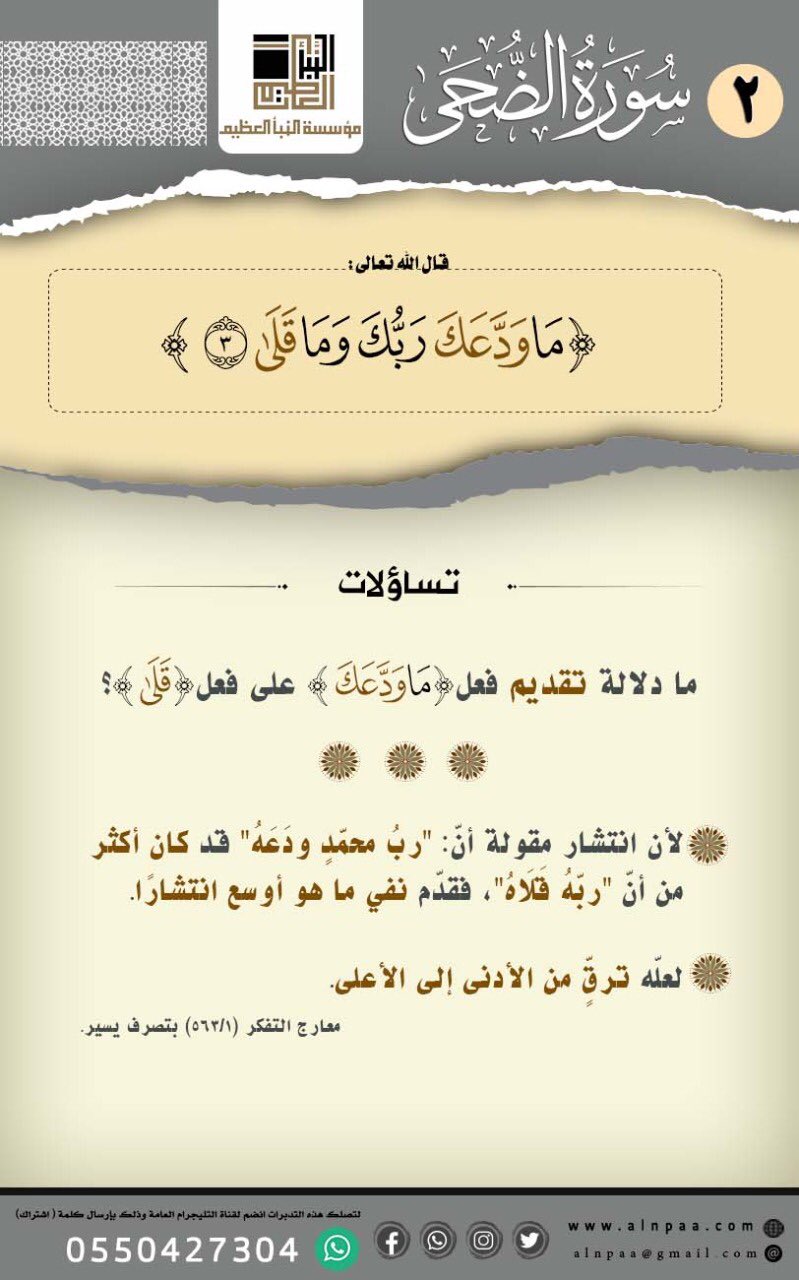 ٢
سُورَةُ الضُّحَى
النبأ العظيم
مؤسسة النبأ العظيم
قال الله تعالى:
﴿مَا وَدَّعَكَ رَبُّكَ وَمَا قَلَىٰ ٣﴾
تساؤلات
ما دلالة تقديم فعل ﴿مَا وَدَّعَكَ﴾ على فعل ﴿قَلَىٰ﴾؟
لأن انتشار مقولة أنّ: "ربُ محمّدٍ ودَعَهُ" قد كان أكثر
من أنّ "ربّهُ قَلَاهُ"، فقدّم نفي ما هو أوسع انتشارًا.
لعلّه ترقٍّ من الأدنى إلى الأعلى.
معارج التفكر (٥٦٣/١) بتصرف يسير.
لتصلك هذه التدبرات انضم لقناة التليجرام العامة وذلك بإرسال كلمة ( اشتراك)
0550427304
www.alnpaa.com
alnpaa@gmail.com